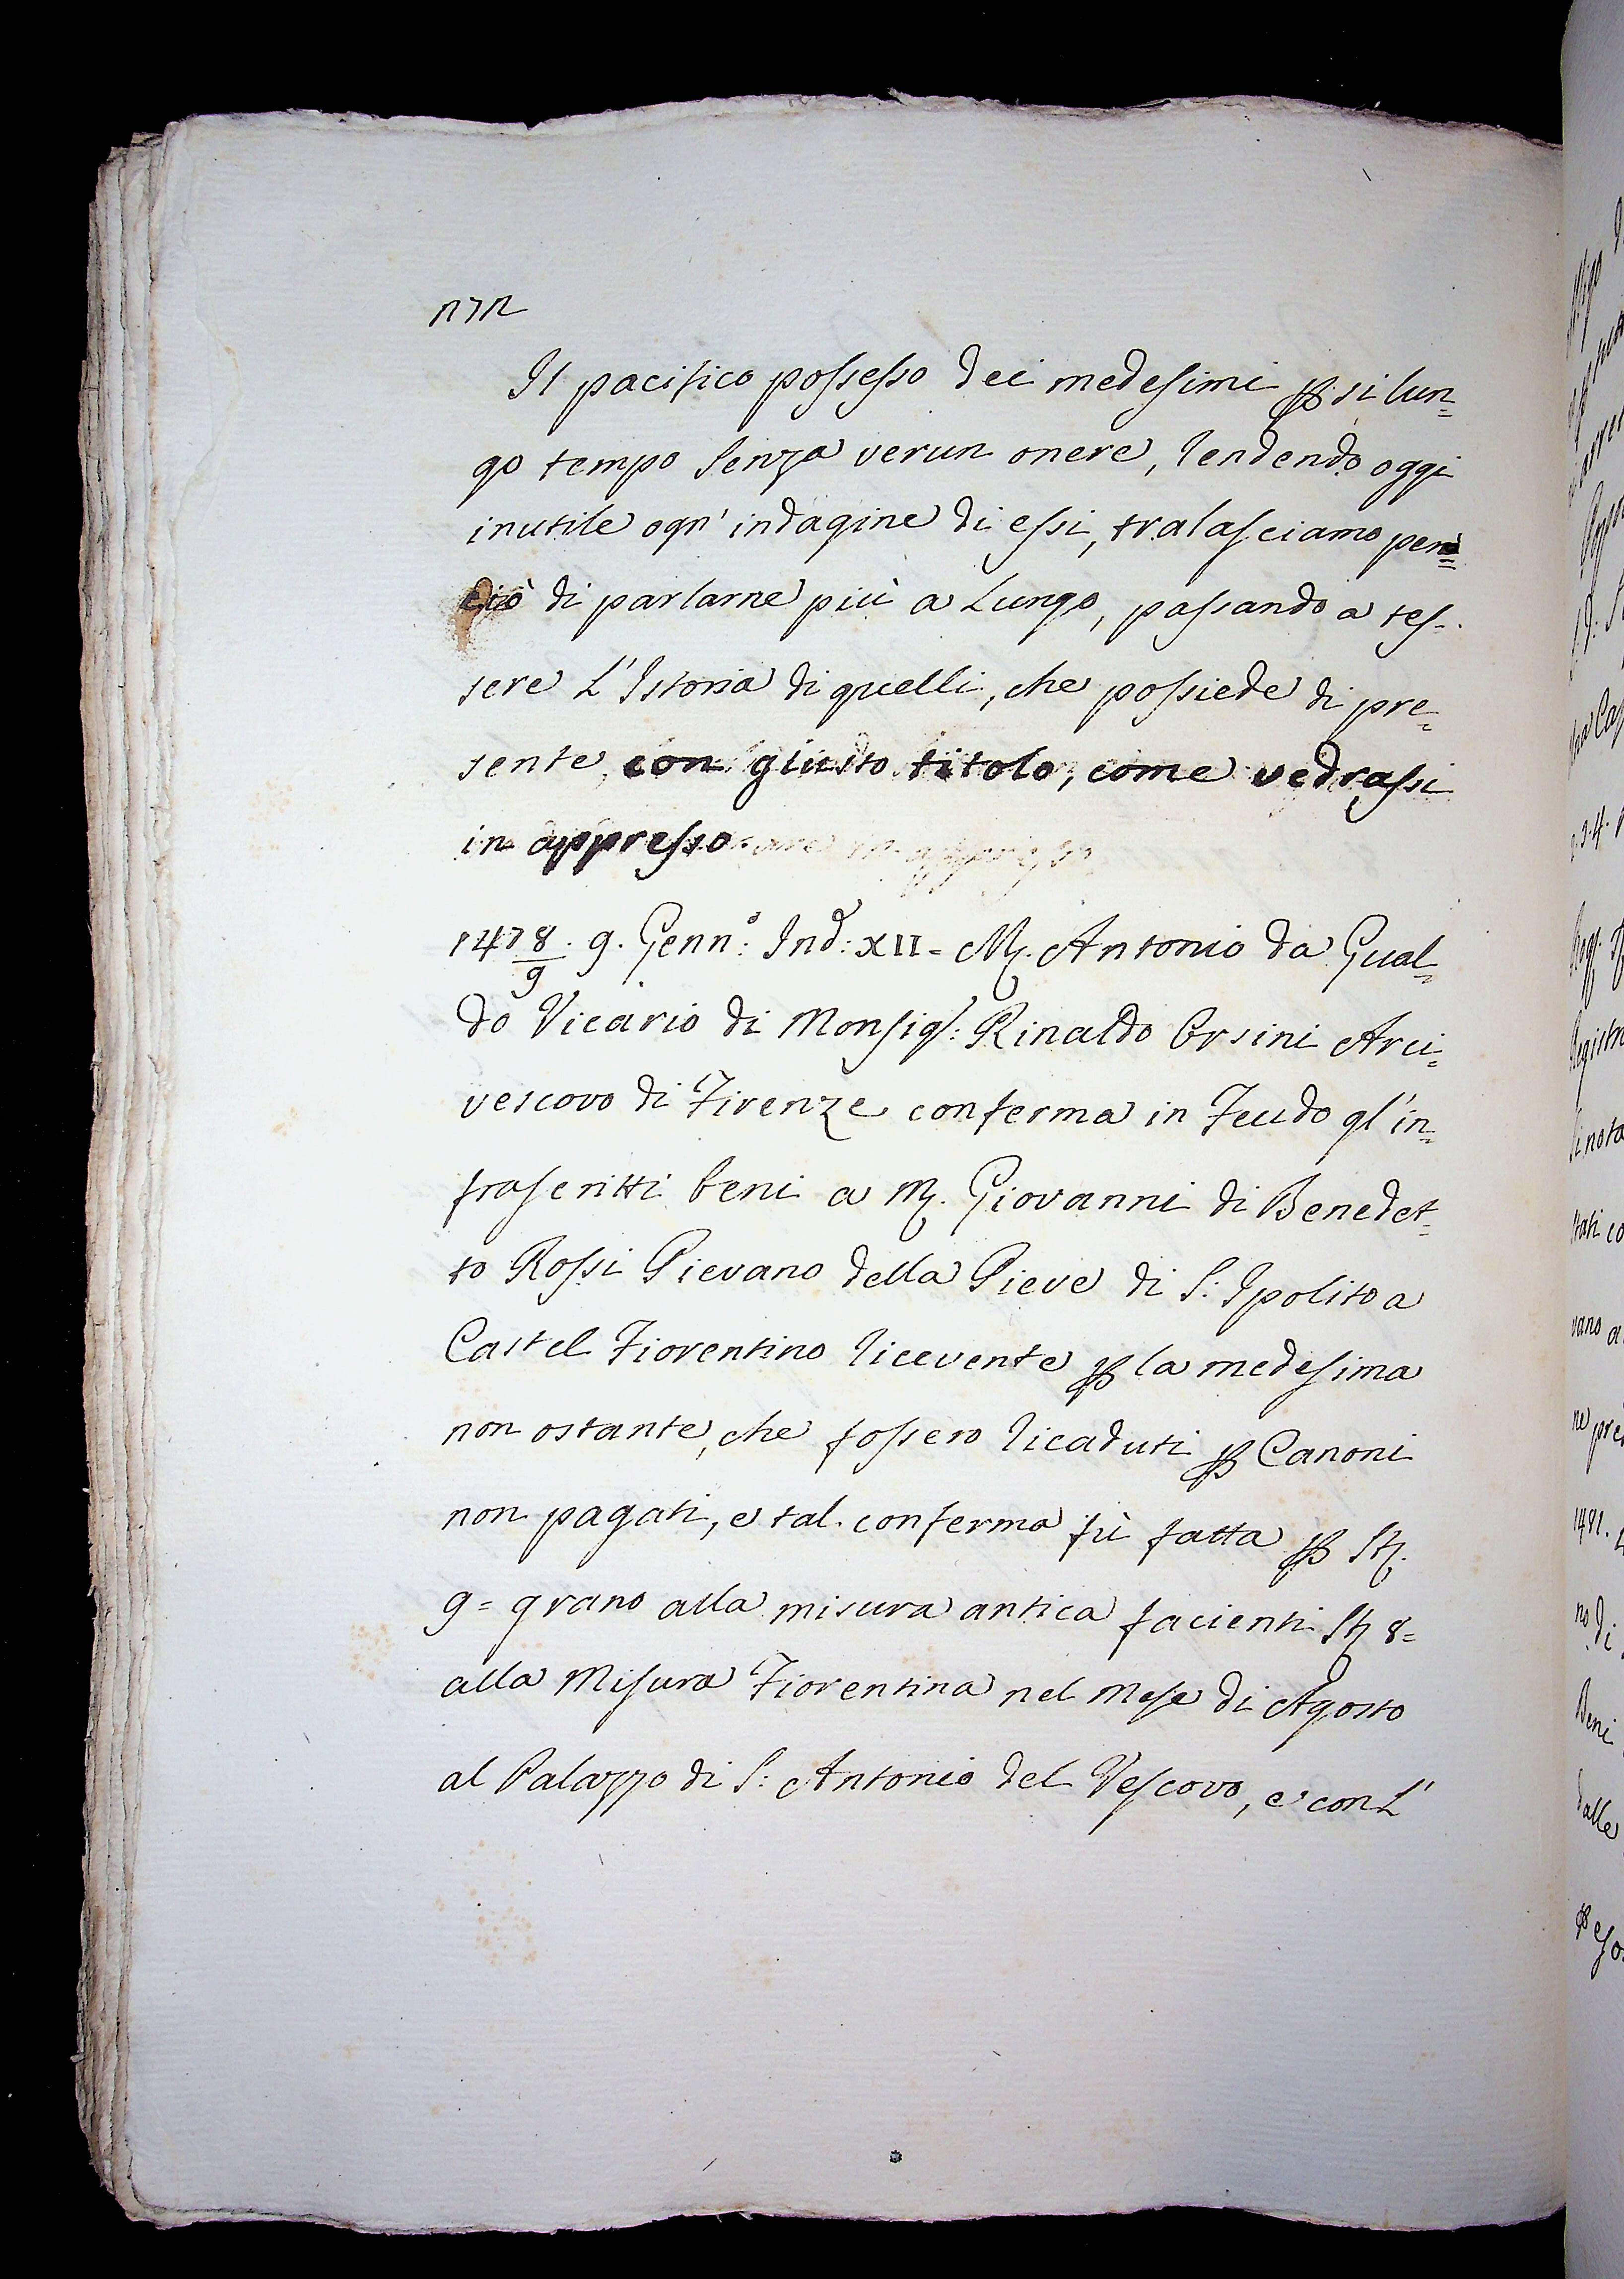 272
Il pacifico possesso dei medesimi ꝑ si lun=
go tempo senza verun onere, rendendo oggi
inutile ogn' indagine di essi, tralasciamo per=
ciò di parlarne più a Lungo, passando a tes=
sere L'Istoria di quelli, che possiede di pre=
sente, con giusto titolo, come vedrassi
in appresso.
1478/9. 9. Genn:º Ind: XII= M. Antonio da Gual=
do Vicario di Monsig: Rinaldo Orsini Arci=
vescovo di Firenze conferma in Feudo gl'in=
frascritti beni a M. Giovanni di Benedet=
to Rossi Pievano della Pieve di S: Ipolito a
Castel Fiorentino ricevente ꝑ la medesima
non ostante, che fossero ricaduti ꝑ Canoni
non pagati, e tal conferma fù fatta ꝑ St.
9= grano alla misura antica facienti St 8=
alla Misura Fiorentina nel Mese di Agosto
al Palazzo di S: Antonio del Vescovo, e con L'